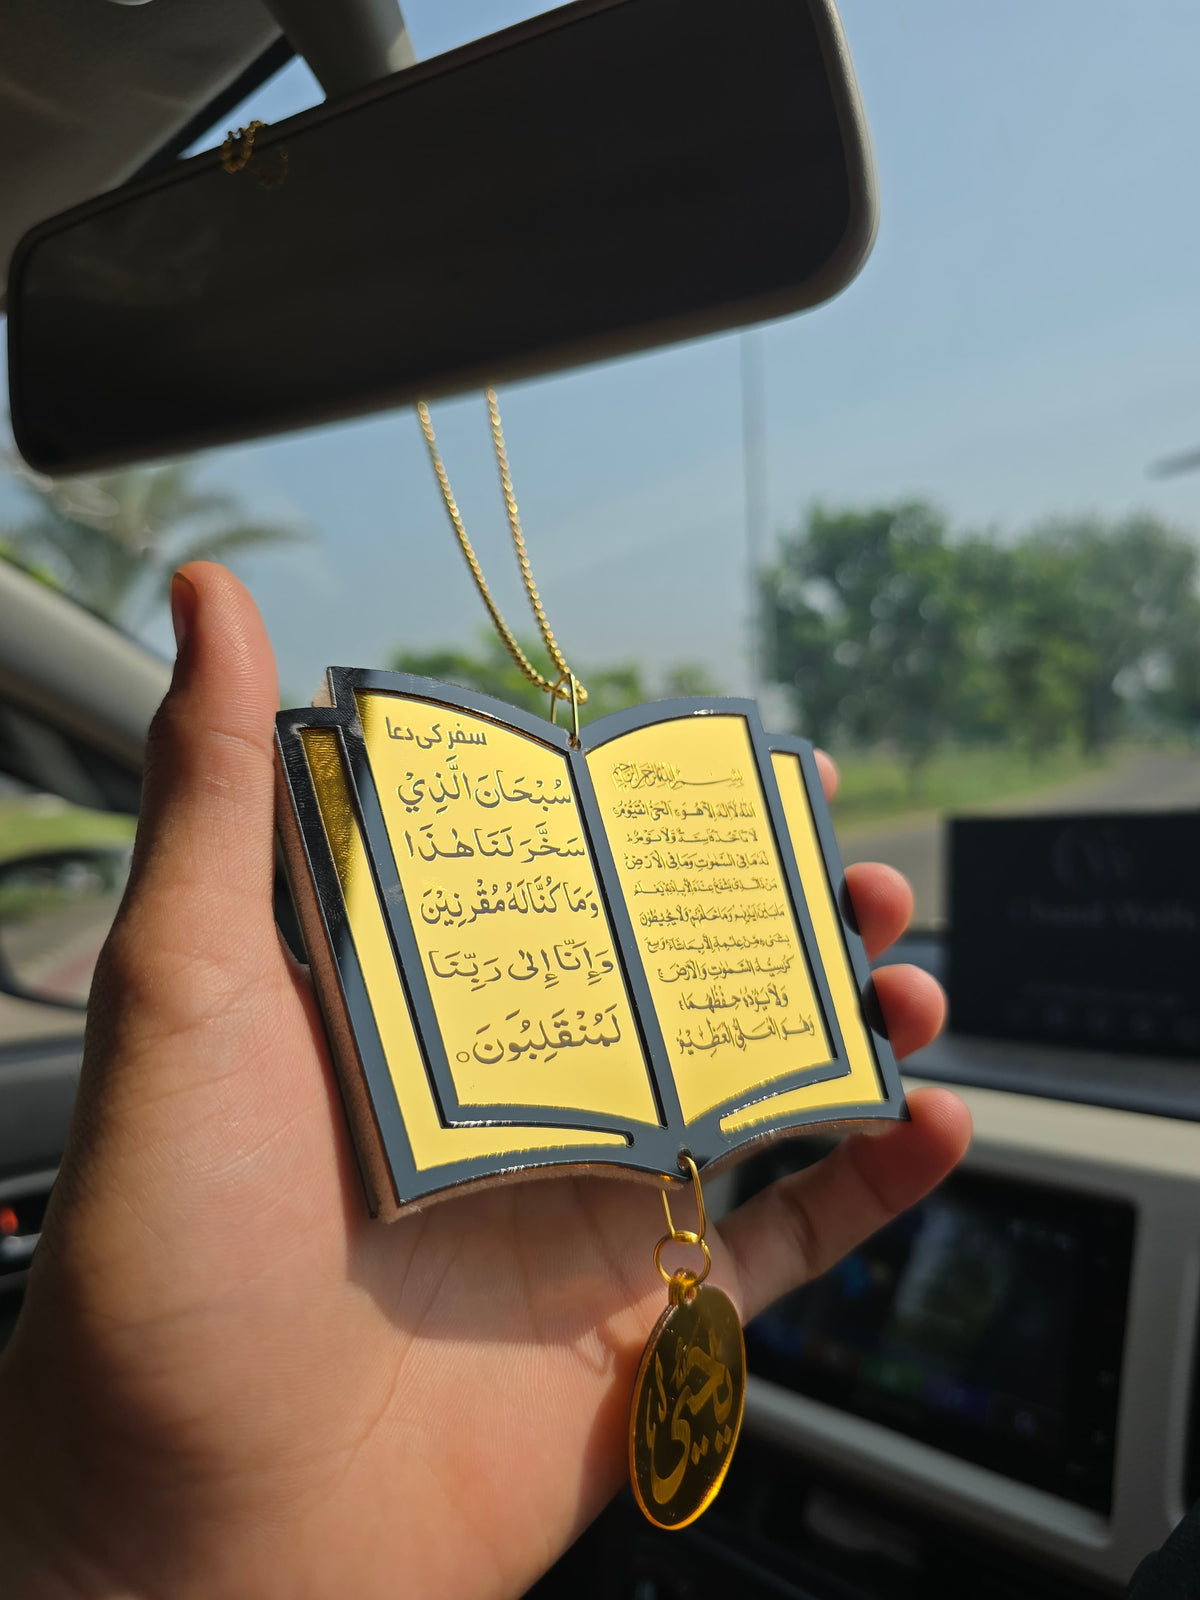 سفر کی دعا
سُبْحَانَ الَّذِيْ
سَخَّرَ لَنَا هٰذَا
وَمَا كُنَّا لَهُ مُقْرِنِيْنَ
وَإِنَّا إِلٰى رَبِّنَا
لَمُنْقَلِبُوْنَ
بِسْمِ اللهِ الرَّحْمٰنِ الرَّحِيْمِ
اَللهُ لَا اِلٰهَ اِلَّا هُوَ الْحَيُّ الْقَيُّوْمُ
لَا تَاْخُذُهٗ سِنَةٌ وَّلَا نَوْمٌ
لَهٗ مَا فِي السَّمٰوٰتِ وَمَا فِي الْاَرْضِ
مَنْ ذَا الَّذِيْ يَشْفَعُ عِنْدَهٗ اِلَّا بِاِذْنِهٖ يَعْلَمُ
مَا بَيْنَ اَيْدِيْهِمْ وَمَا خَلْفَهُمْ وَلَا يُحِيْطُوْنَ
بِشَيْءٍ مِّنْ عِلْمِهٖ اِلَّا بِمَا شَاءَ وَسِعَ
كُرْسِيُّهُ السَّمٰوٰتِ وَالْاَرْضَ
وَلَا يَئُوْدُهٗ حِفْظُهُمَا
وَهُوَ الْعَلِيُّ الْعَظِيْمُ
يحيى